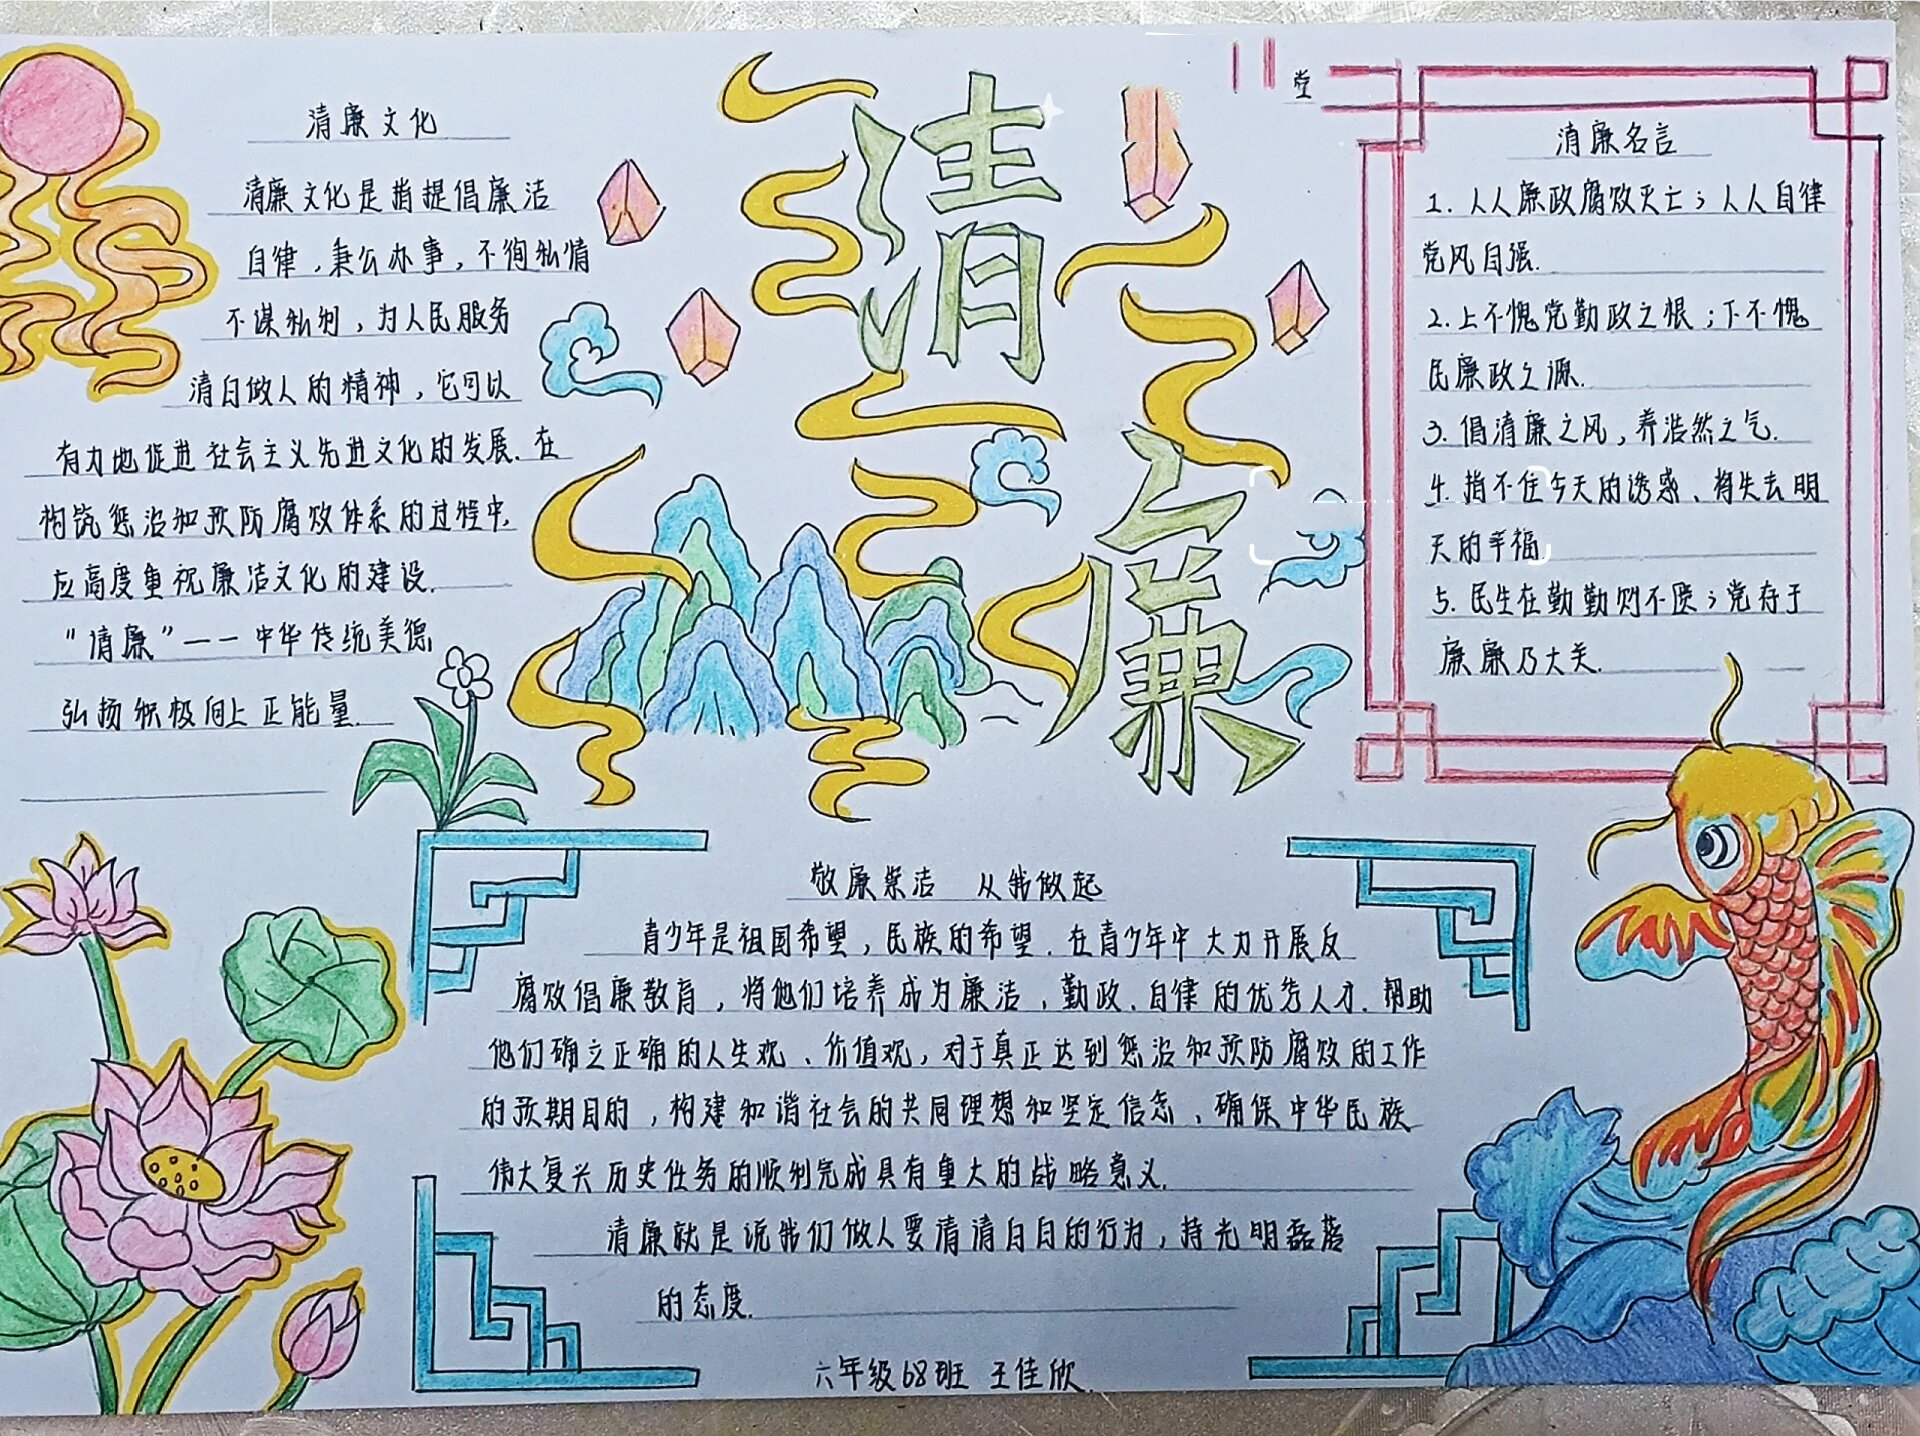 清廉文化
清廉文化是指提倡廉洁
自律，秉公办事，不徇私情
不谋私利，为人民服务
清白做人的精神，它可以
有力地促进社会主义先进文化的发展.在
构筑惩治和预防腐败体系的过程中,
应高度重视廉洁文化的建设.
"清廉"——中华传统美德
弘扬积极向上正能量.
清
廉
堂
清廉名言
1.人人廉政腐败灭亡;人人自律
党风自强.
2.上不愧党勤政之恨;下不愧
民廉政之源.
3.倡清廉之风,养浩然之气.
4.挡不住今天的诱惑、将失去明
天的幸福.
5.民生在勤勤则不匮;党存于
廉廉乃大关.
敬廉崇洁 从我做起
青少年是祖国希望,民族的希望.在青少年中大力开展反
腐败倡廉教育，将他们培养成为廉洁、勤政、自律的优秀人才.帮助
他们确立正确的人生观、价值观，对于真正达到惩治和预防腐败的工作
的预期目的，构建和谐社会的共同理想和坚定信念、确保中华民族
伟大复兴历史任务的顺利完成具有重大的战略意义.
清廉就是说我们做人要清清白白的行为，持光明磊落
的态度.
六年级68班 王佳欣.